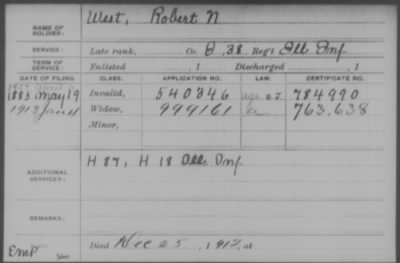 NAME OF SOLDIER: West, Robert N
SERVICE: Late rank, Co. D, 38 Reg't Ill Inf
TERM OF SERVICE: Enlisted , 1 Discharged , 1
DATE OF FILING. CLASS. APPLICATION NO. LAW. CERTIFICATE NO.
1883 May 19 Invalid, 540346 784990
1913 Jan 4 Widow, 999161 763.638
Minor,
ADDITIONAL SERVICES: H 87, H 18 Ill. Inf
REMARKS:
EMP Died Dec 25, 1912, at